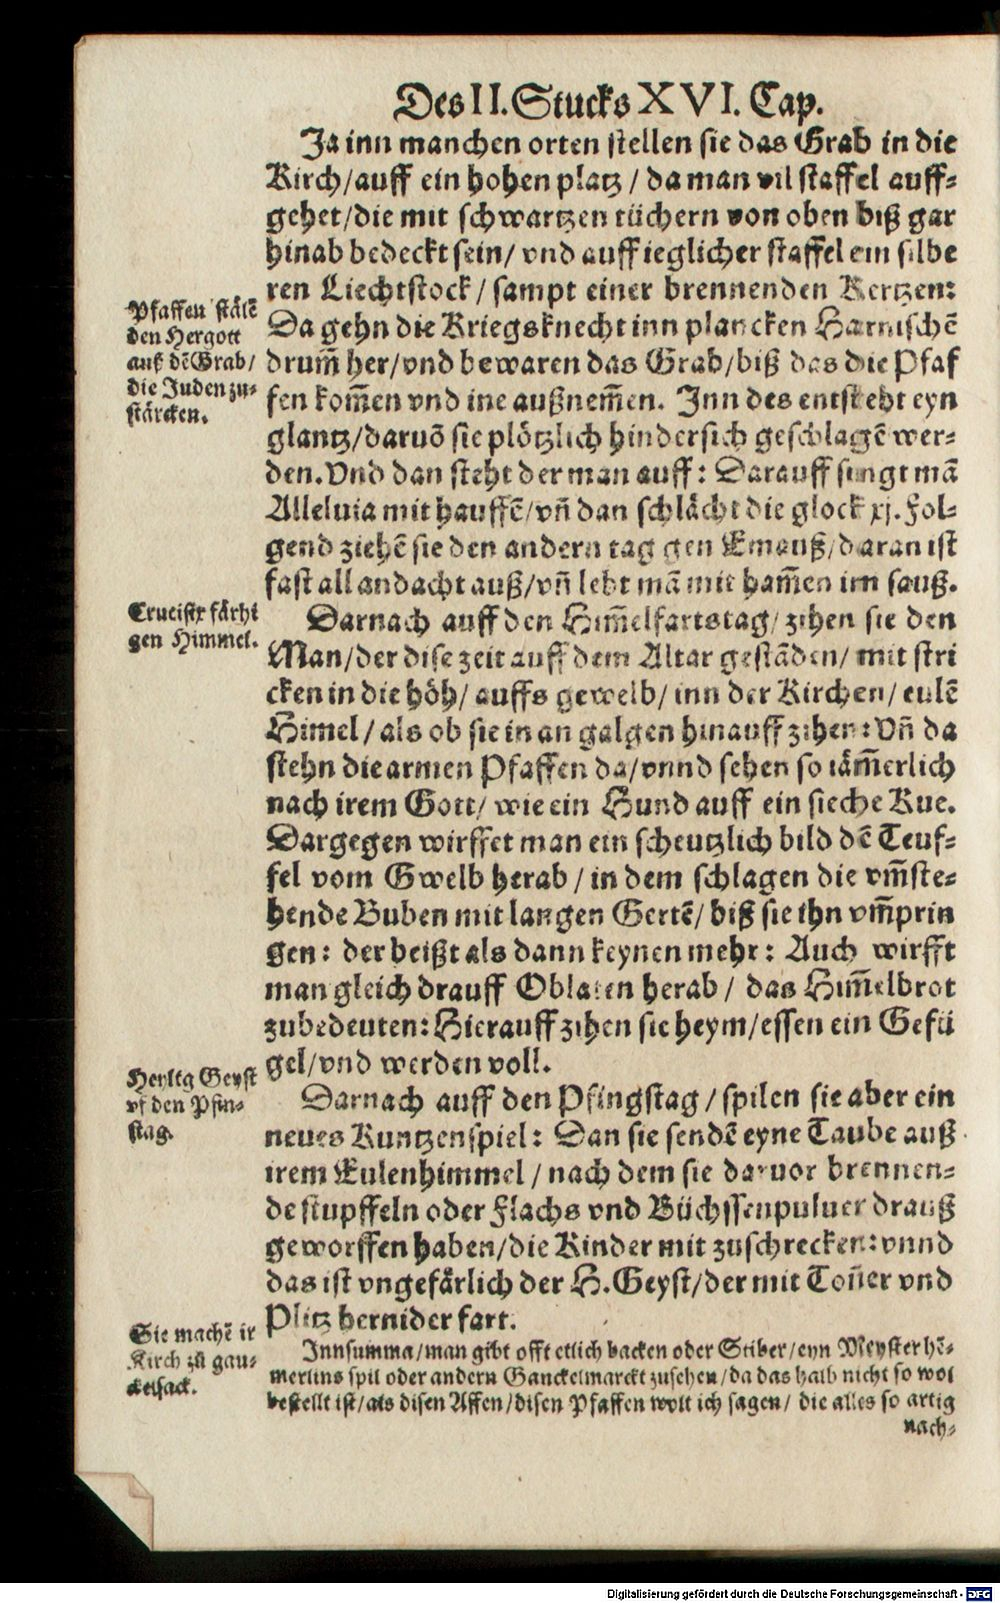 Des II. Stucks XVI. Cap.
Ja inn manchen orten stellen sie das Grab in die
Kirch/auff ein hohen platz / da man vil staffel auff-
gehet/die mit schwartzen tüchern von oben biß gar
hinab bedeckt sein/ vnd auff ieglicher staffel ein silbe
ren Liechtstock / sampt einer brennenden Kertzen:
Da gehn die Kriegsknecht inn plancken Harnischē
drum̄ her/vnd bewaren das Grab/biß das die Pfaf
fen kom̄en vnd ine außnem̄en. Inn des entsteht eyn
glantz/daruō sie plötzlich hindersich geschlagē wer-
den. Vnd dan steht der man auff: Darauff singt mā
Alleluia mit hauffē/vn̄ dan schlächt die glock xj. Fol-
gend ziehē sie den andern tag gen Emauß/daran ist
fast all andacht auß/vn̄ lebt mā mit ham̄en im sauß.
Darnach auff den Him̄elfartstag/ zihen sie den
Man/der dise zeit auff dem Altar gestādēn/ mit stri
cken in die höh/ auffs gewelb/ inn der Kirchen/ eulē
Himel / als ob sie in an galgen hinauff zihen: Vn̄ da
stehn die armen Pfaffen da/vnnd sehen so iäm̄erlich
nach irem Gott/ wie ein Hund auff ein sieche Kue.
Dargegen wirffet man ein scheutzlich bild dē Teuf-
fel vom Gwelb herab / in dem schlagen die vm̄ste-
hende Buben mit langen Gertē/ biß sie ihn vm̄prin
gen: der beißt als dann keynen mehr: Auch wirfft
man gleich drauff Oblaten herab / das Him̄elbrot
zubedeuten: Hierauff zihen sie heym/essen ein Gefü
gel/vnd werden voll.
Darnach auff den Pfingstag / spilen sie aber ein
neues Kuntzenspiel: Dan sie sendē eyne Taube auß
irem Eulenhimmel / nach dem sie daruor brennen-
de stupffeln oder Flachs vnd Büchssenpuluer drauß
geworffen haben/die Kinder mit zuschrecken: vnnd
das ist vngefärlich der H. Geyst/der mit Ton̄er vnd
Plitz hernider fart.
Innsumma/man gibt offt etlich backen oder Stiber/eyn Meyster hē-
merlins spil oder andern Ganckelmarckt zusehen/da das halb nicht so wol
bestellt ist/als disen Affen/disen Pfaffen wolt ich sagen/ die alles so artig
nach-
Pfaffen stälē
den Hergott
auß dē Grab/
die Juden zu-
stärcken.
Crucifix färht
gen Himmel.
Heylig Geyst
vf den Pfin-
stag.
Sie machē ir
Kirch zū gau-
ckelsack.
Digitalisierung gefördert durch die Deutsche Forschungsgemeinschaft - DFG